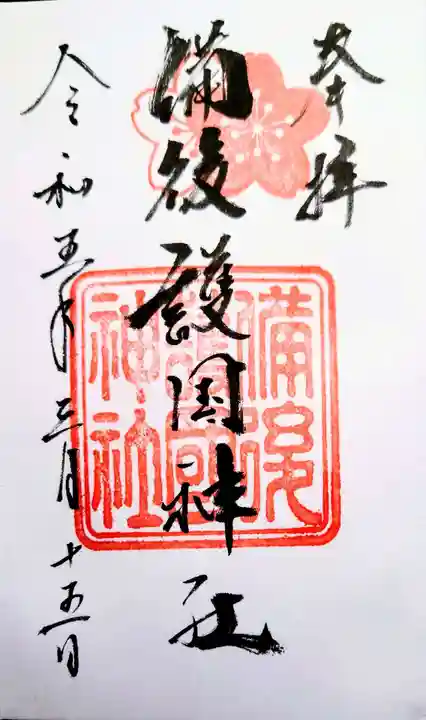 奉拝
備後護国神社
備後
護國
神社
令和五年三月十五日